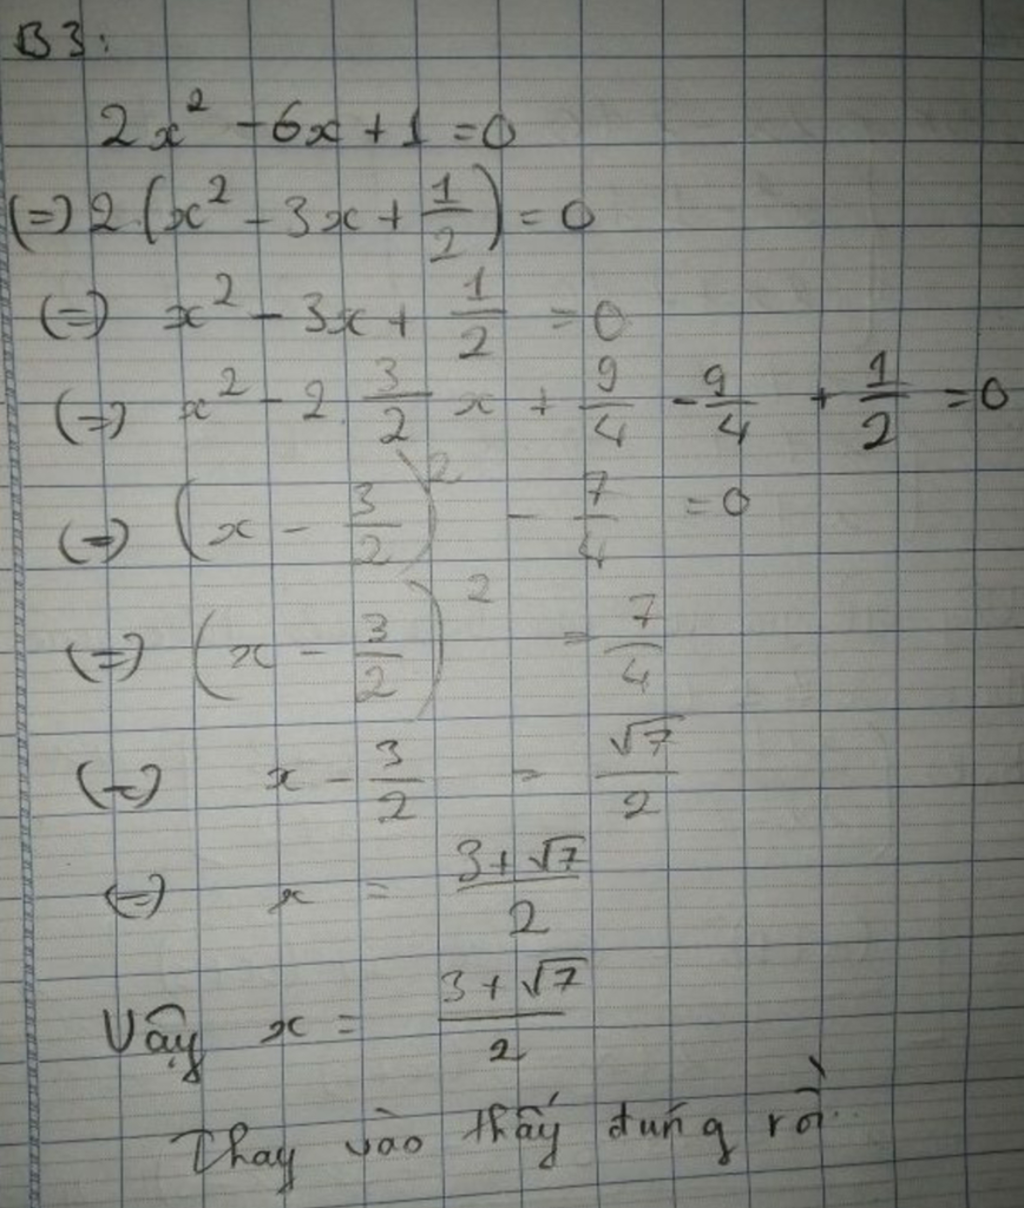 B3:
2x² - 6x + 1 = 0
(=) 2.(x² - 3x + 1/2) = 0
(=) x² - 3x + 1/2 = 0
(=) x² - 2.3/2 x + 9/4 - 9/4 + 1/2 = 0
(=) (x - 3/2)² - 7/4 = 0
(=) (x - 3/2)² = 7/4
(=) x - 3/2 = √7/2
(=) x = (3+√7)/2
Vậy x = (3+√7)/2
Thay vào thấy đúng rồi.